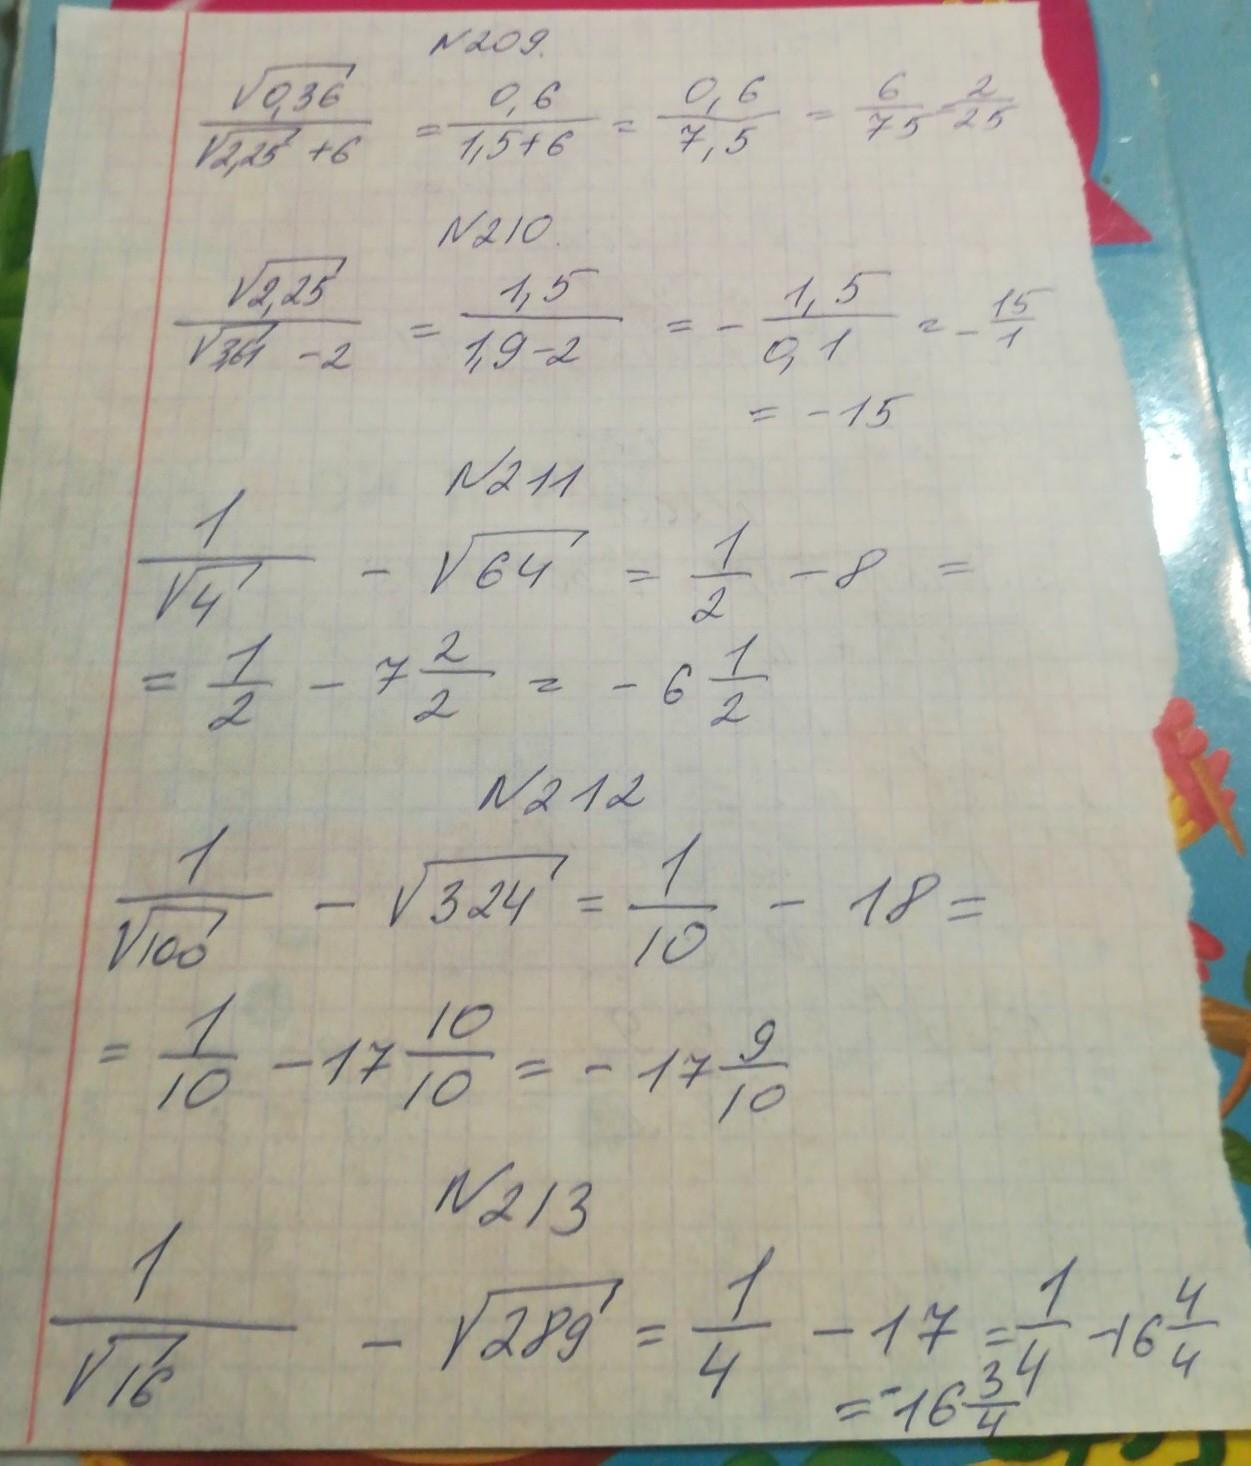 N209.
√0,36 / (√2,25 + 6) = 0,6 / (1,5+6) = 0,6 / 7,5 = 6/75 = 2/25
N210.
√2,25 / (√3,61 - 2) = 1,5 / (1,9-2) = - 1,5 / 0,1 = - 15/1
= -15
N211
1/√4 - √64 = 1/2 - 8 =
= 1/2 - 7 2/2 = - 6 1/2
N212
1/√100 - √324 = 1/10 - 18 =
= 1/10 - 17 10/10 = - 17 9/10
N213
1/√16 - √289 = 1/4 - 17 = 1/4 - 16 4/4
= -16 3/4